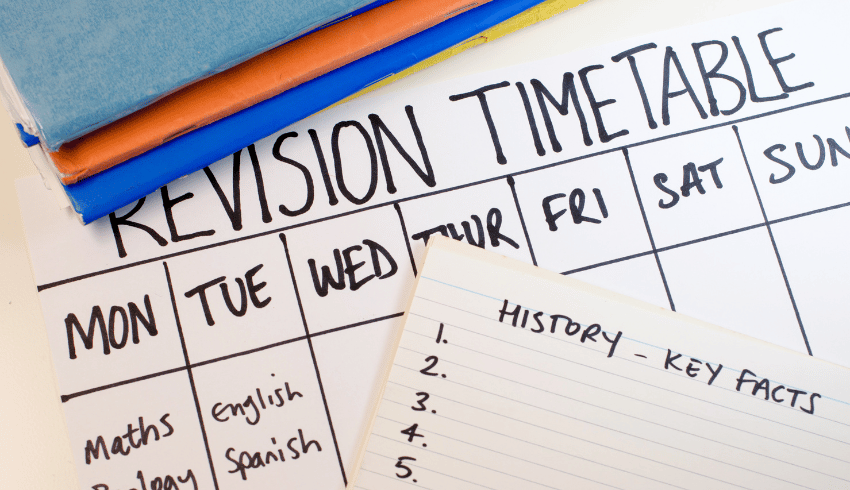 REVISION TIMETABLE
MON TUE WED THUR FRI SAT SUN
Maths English
Biology Spanish
HISTORY - KEY FACTS
1.
2.
3.
4.
5.